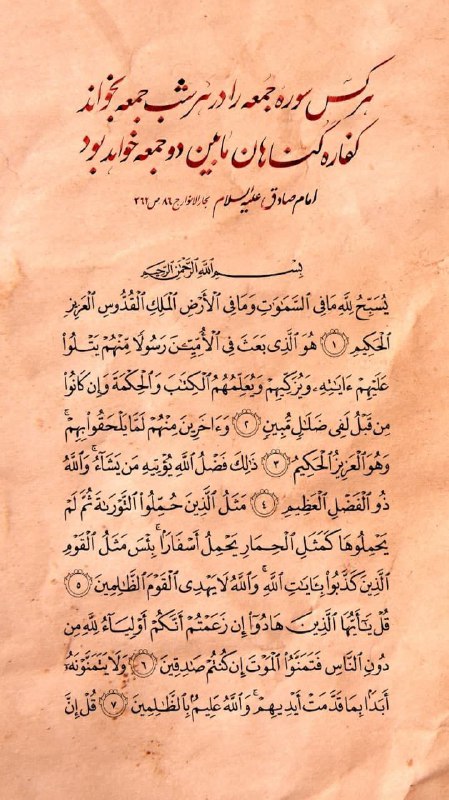 هر کس سوره جمعه را در هر شب جمعه بخواند
کفاره گناهان مابین دو جمعه خواهد بود
امام صادق علیه‌السلام بحارالانوار ج ۸۶ ص ۳۶۲
بِسْمِ اللَّهِ الرَّحْمَٰنِ الرَّحِيمِ
يُسَبِّحُ لِلَّهِ مَا فِي السَّمَٰوَٰتِ وَمَا فِي الْأَرْضِ الْمَلِكِ الْقُدُّوسِ الْعَزِيزِ
الْحَكِيمِ ﴿١﴾ هُوَ الَّذِي بَعَثَ فِي الْأُمِّيِّۦنَ رَسُولًا مِنْهُمْ يَتْلُوا
عَلَيْهِمْ ءَايَٰتِهِۦ وَيُزَكِّيهِمْ وَيُعَلِّمُهُمُ الْكِتَٰبَ وَالْحِكْمَةَ وَإِن كَانُوا
مِن قَبْلُ لَفِي ضَلَٰلٍ مُّبِينٍ ﴿٢﴾ وَءَاخَرِينَ مِنْهُمْ لَمَّا يَلْحَقُوا بِهِمْ ۚ
وَهُوَ الْعَزِيزُ الْحَكِيمُ ﴿٣﴾ ذَٰلِكَ فَضْلُ اللَّهِ يُؤْتِيهِ مَن يَشَآءُ ۚ وَاللَّهُ
ذُو الْفَضْلِ الْعَظِيمِ ﴿٤﴾ مَثَلُ الَّذِينَ حُمِّلُوا التَّوْرَىٰةَ ثُمَّ لَمْ
يَحْمِلُوهَا كَمَثَلِ الْحِمَارِ يَحْمِلُ أَسْفَارًا ۚ بِئْسَ مَثَلُ الْقَوْمِ
الَّذِينَ كَذَّبُوا بِـَٔايَٰتِ اللَّهِ ۚ وَاللَّهُ لَا يَهْدِي الْقَوْمَ الظَّٰلِمِينَ ﴿٥﴾
قُلْ يَٰٓأَيُّهَا الَّذِينَ هَادُوٓا إِن زَعَمْتُمْ أَنَّكُمْ أَوْلِيَآءُ لِلَّهِ مِن
دُونِ النَّاسِ فَتَمَنَّوُا الْمَوْتَ إِن كُنتُمْ صَٰدِقِينَ ﴿٦﴾ وَلَا يَتَمَنَّوْنَهُۥٓ
أَبَدًا بِمَا قَدَّمَتْ أَيْدِيهِمْ ۚ وَاللَّهُ عَلِيمٌ بِالظَّٰلِمِينَ ﴿٧﴾ قُلْ إِنَّ